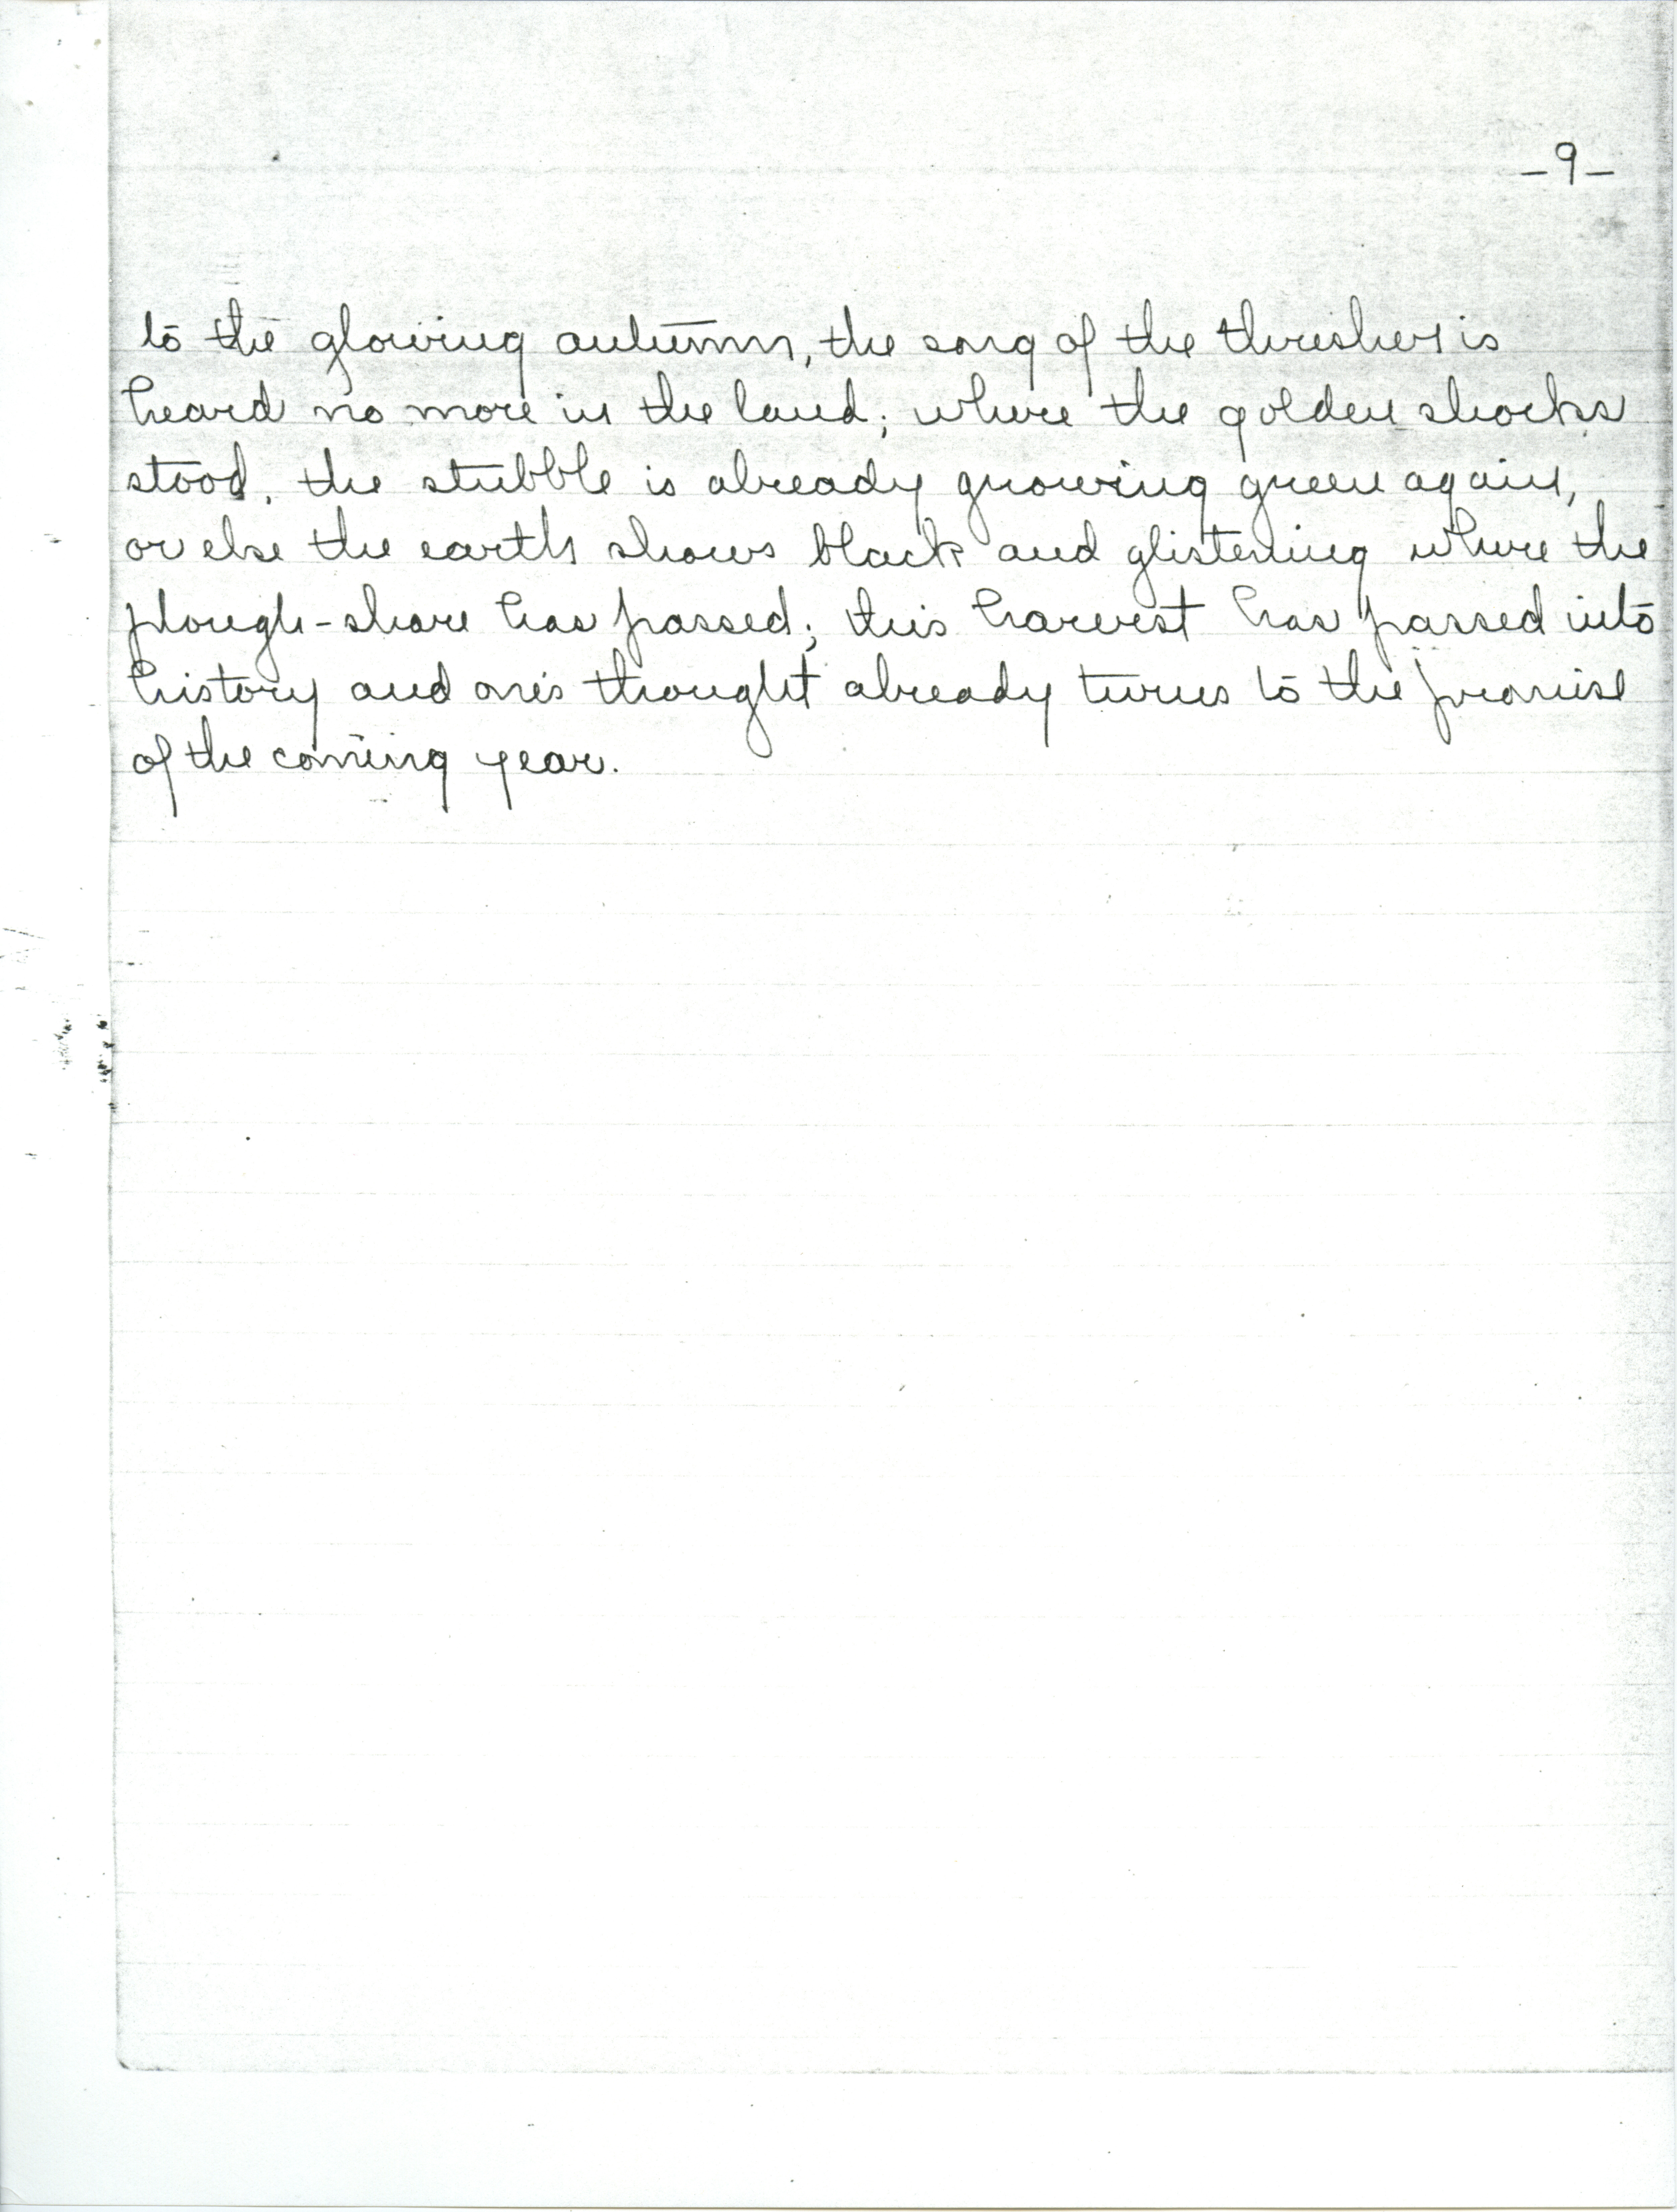 -9-
to the glowing autumn, the song of the thresher is
heard no more in the land; where the golden shocks
stood, the stubble is already growing green again,
or else the earth shows black and glistening where the
plough-share has passed; this harvest has passed into
history and one's thought already turns to the promise
of the coming year.